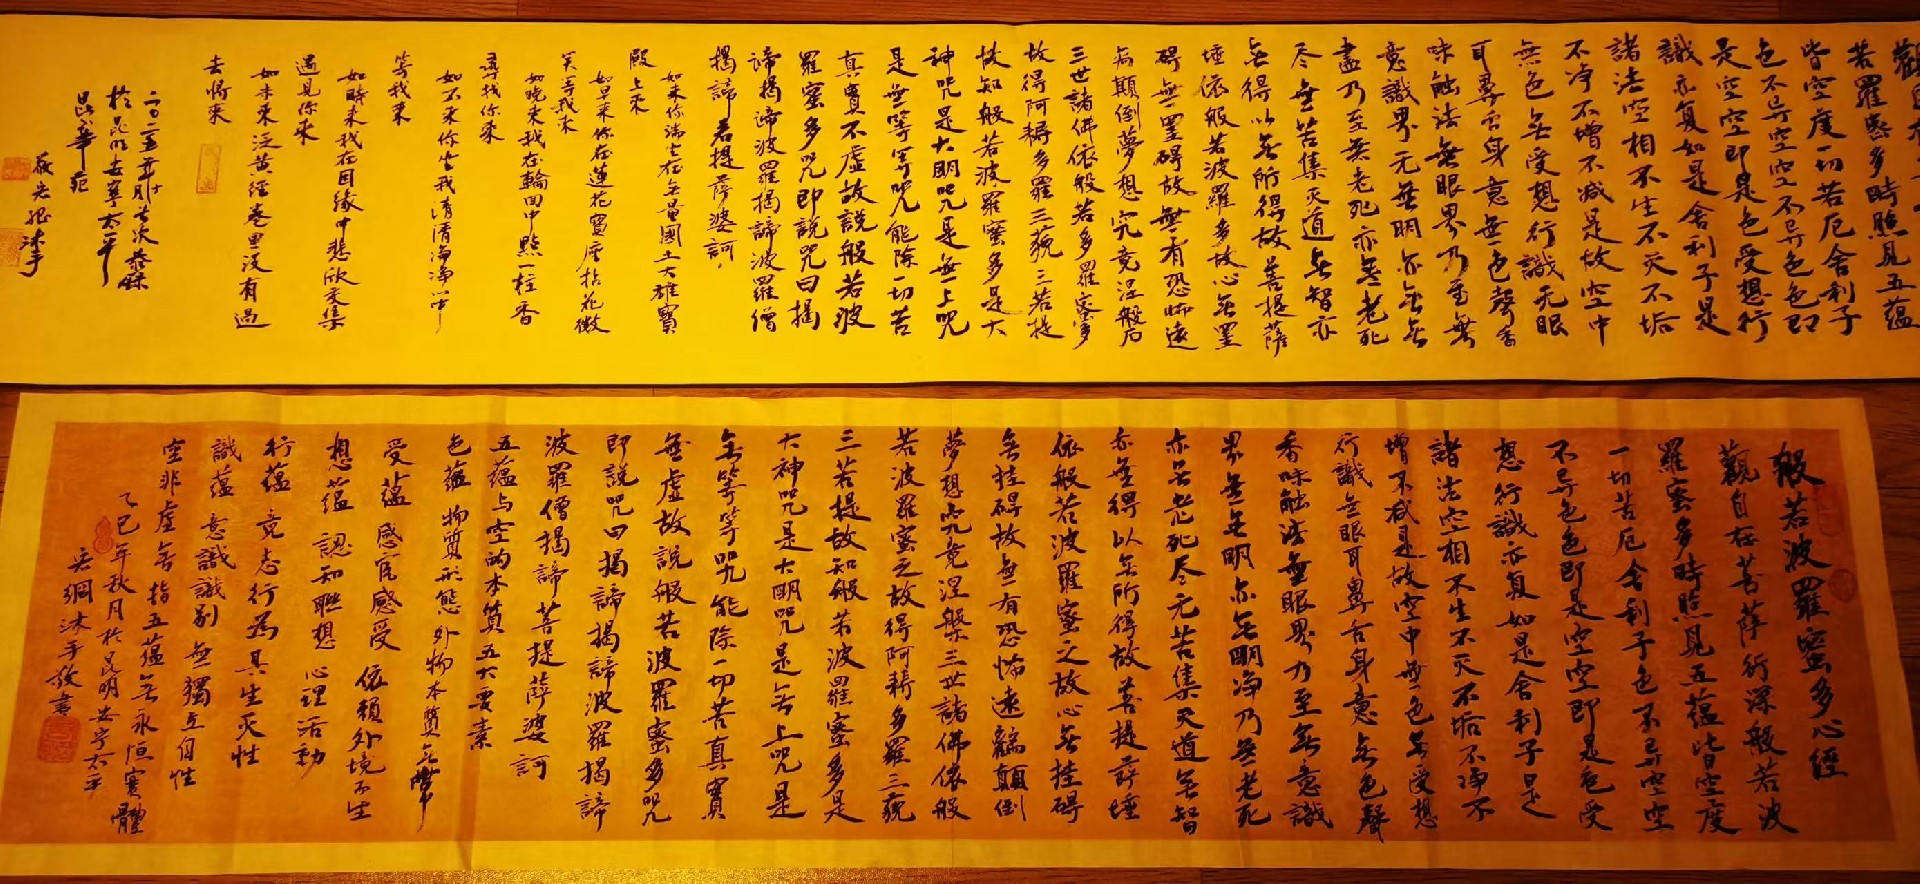 若羅密多時照見五蘊
皆空度一切苦厄舍利子
色不异空空不异色色即
是空空即是色受想行
識亦复如是舍利子是
諸法空相不生不灭不垢
不净不增不减是故空中
無色無受想行識无眼
耳鼻舌身意無色聲香
味触法無眼界乃至無
意識界无無明亦無無
盡乃至無老死亦無老死
尽無苦集灭道無智亦
無得以無所得故菩提薩
埵依般若波羅多故心無罣
碍無罣碍故無有恐怖遠
離顛倒夢想究竟涅般后
三世諸佛依般若多羅蜜多
故得阿耨多羅三藐三若提
故知般若波羅蜜多是大
神咒是大明咒是無上咒
是無等等咒能除一切苦
真實不虚故説般若波
羅蜜多咒即説咒曰揭
諦揭諦波羅揭諦波羅僧
揭諦菩提薩婆訶
如来你端坐在無量國土大雄寶
殿上来
如早来你在蓮花寶座拈花微
笑等我来
如晚来我在輪回中點一柱香
尋找你来
如不来你等我清清净净中
等我来
如時来我在因緣中悲欣交集
遇見你来
如未来泛黄經卷里没有過
去將来
於昆明安寧太平
般若波羅蜜多心經
觀自在菩薩行深般若波
羅蜜多時照見五蘊皆空度
一切苦厄舍利子色不异空空
不异色色即是空空即是色受
想行識亦复如是舍利子是
諸法空相不生不灭不垢不净不
增不减是故空中無色無受想
行識無眼耳鼻舌身意無色聲
香味触法無眼界乃至無意識
界無無明亦無明净乃無老死
亦無老死尽无苦集灭道無智
亦無得以無所得故菩提薩埵
依般若波羅蜜之故心無挂碍
無挂碍故無有恐怖遠離顛倒
夢想究竟涅槃三世諸佛依般
若波羅蜜之故得阿耨多羅三藐
三若提故知般若波羅蜜多是
大神咒是大明咒是無上咒是
無等等咒能除一切苦真實
無虚故説般若波羅蜜多咒
即説咒曰揭諦揭諦波羅揭諦
波羅僧揭諦菩提薩婆訶
五蕴与空的本質五大要素
色蕴 物質形態外物本質無常
受蕴 感官感受 依賴外境不生
想蕴 認知联想 心理活動
行蕴 竟志行為 具生灭性
識蕴 意識識别 無獨立自性
空非虚無指五蕴無永恒實體
乙巳年秋月於昆明安宁太平
吴綱沐手敬書